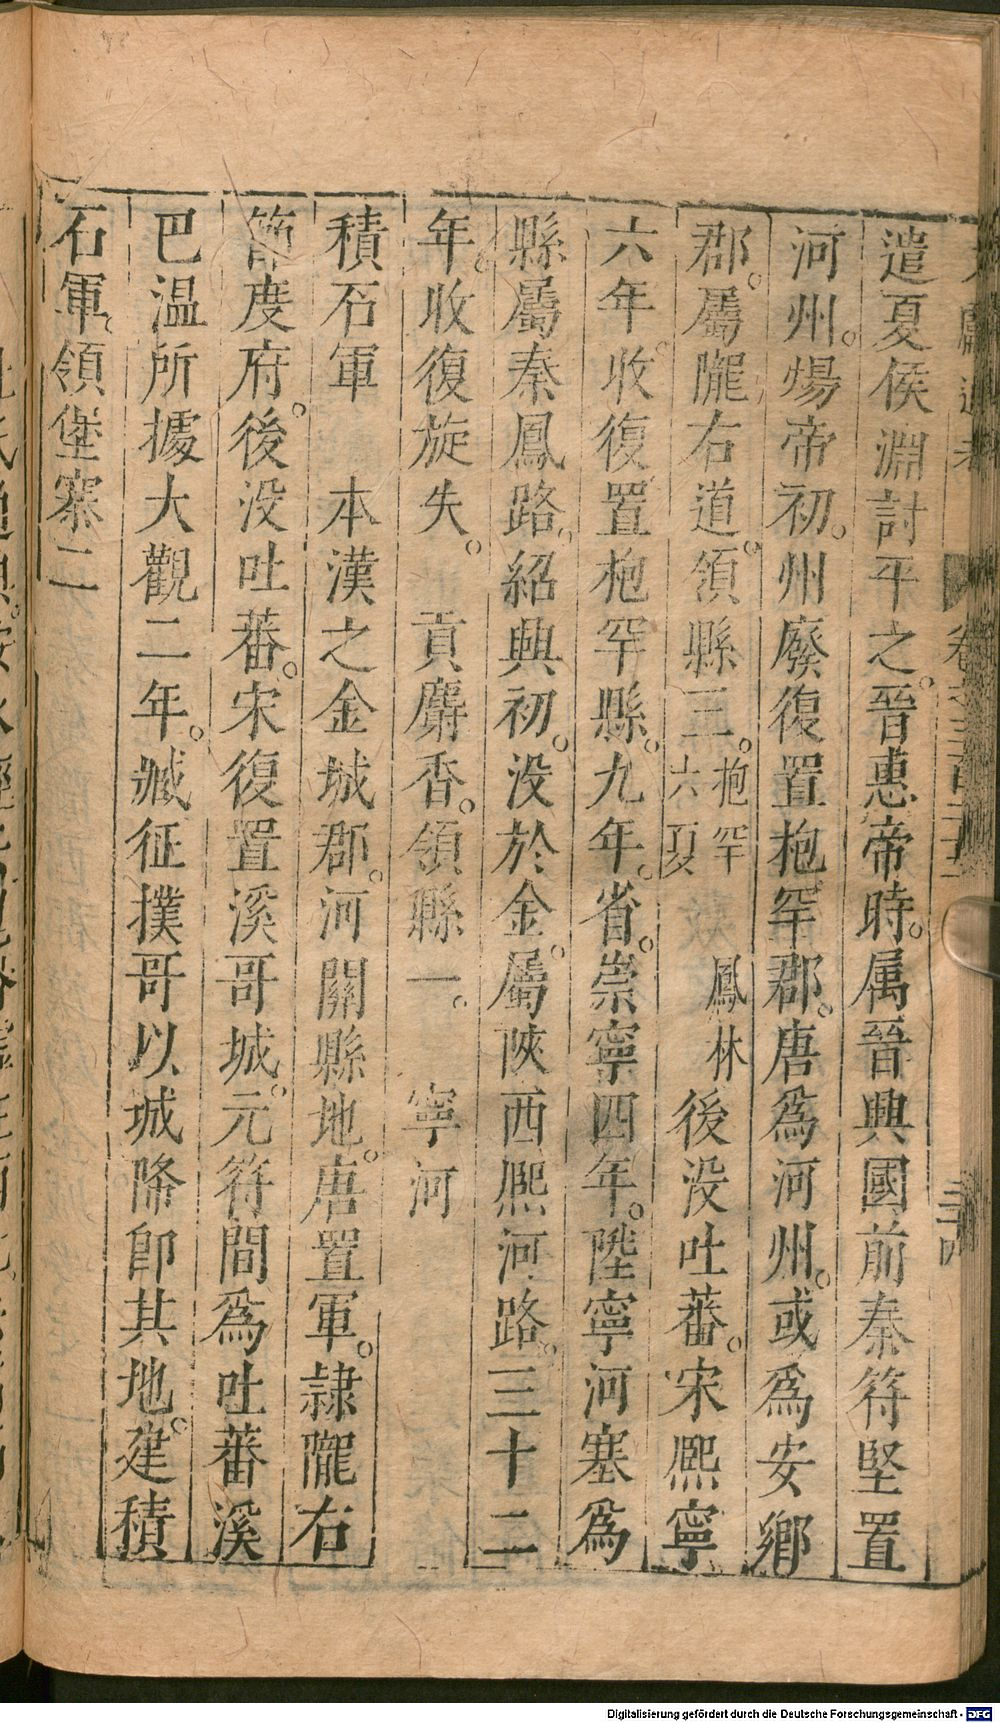 遣夏侯淵討平之。晉惠帝時。属晉興國前秦符堅置
河州。煬帝初。州廢復置抱罕郡。唐爲河州。或爲安鄉
郡。屬隴右道。領縣三。抱罕 六夏 鳳林 後没吐蕃。宋熈寧
六年。收復置枹罕縣。九年。省。崇寧四年。陞寧河塞爲
縣屬秦鳳路。紹興初。没於金。屬陜西熈河路。三十二
年。收復旋失。 貢麝香。領縣一。 寧河
積石軍 本漢之金城郡。河關縣地。唐置軍。隷隴右
節度府。後没吐蕃。宋復置溪哥城。元符間爲吐蕃溪
巴温所據大觀二年。臧征撲哥以城降卽其地建積
石軍。領堡寨二
Digitalisierung gefördert durch die Deutsche Forschungsgemeinschaft - DFG